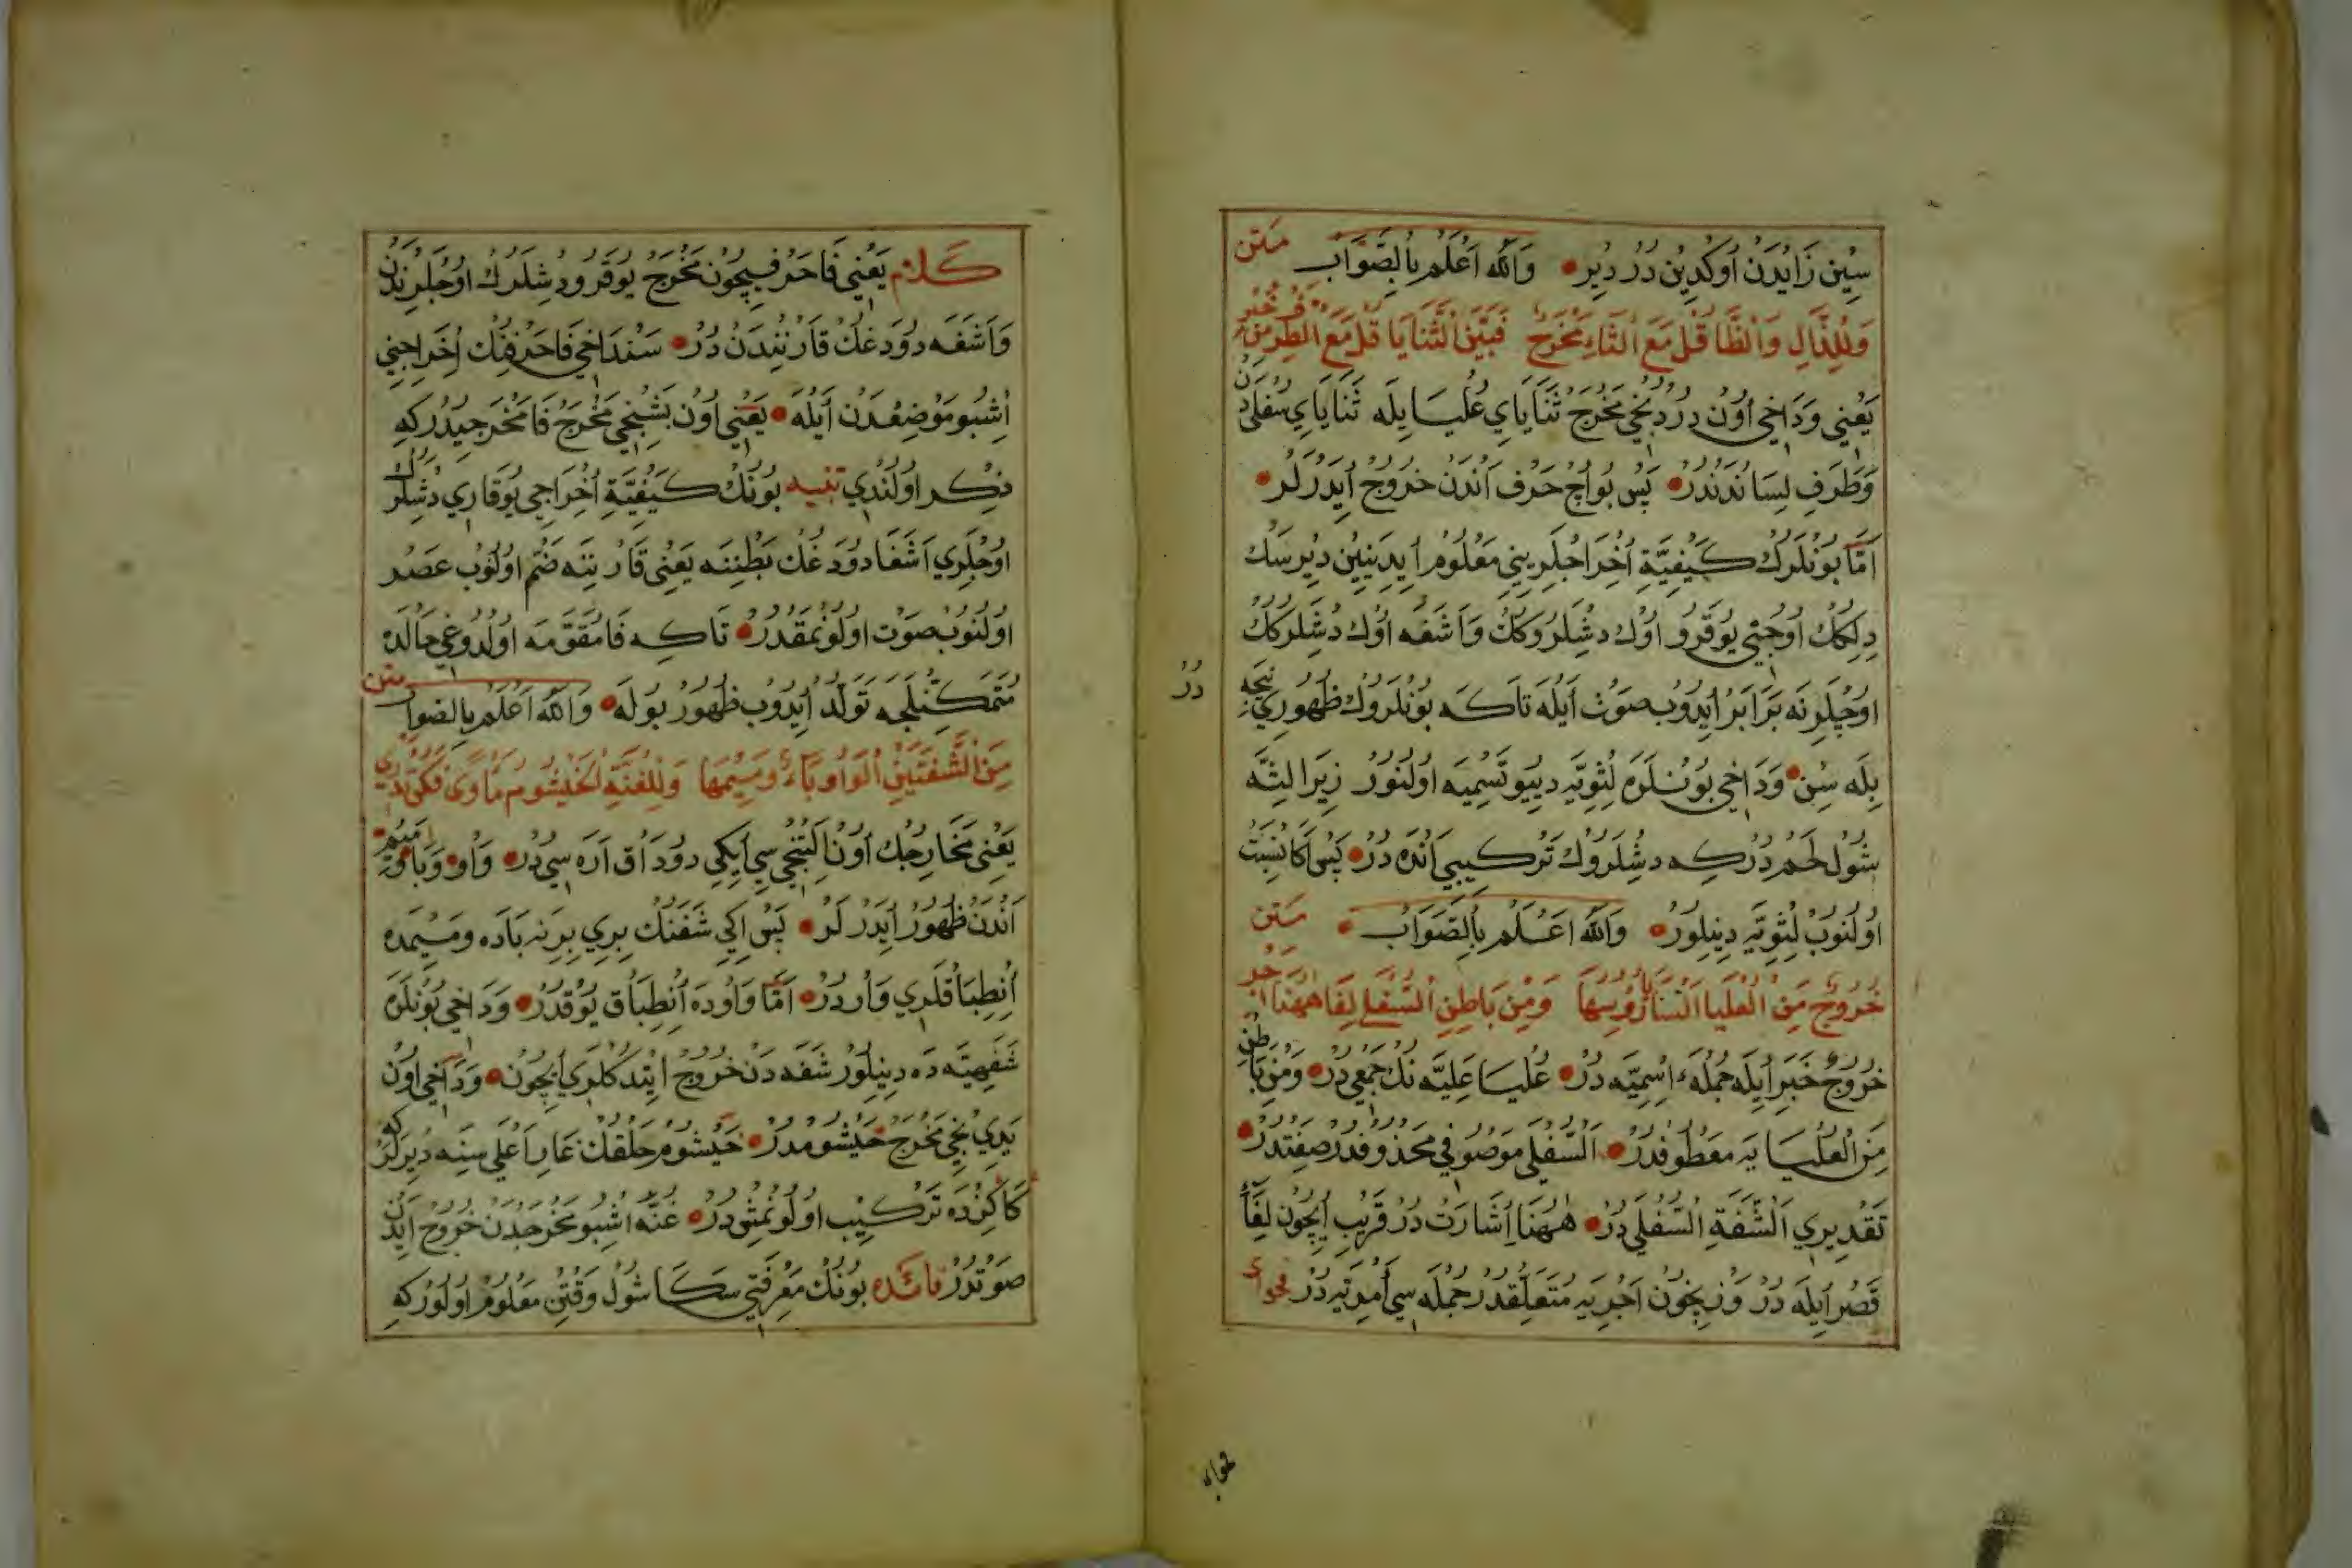 سِينِ زَايْدَنْ اُوكْدِينْ دُرْ دِيرْ • وَاللّٰهُ اَعْلَمُ بِالصَّوَابْ متن
وَلِلذَّالِ وَالظَّا قُلْ مَعَ الثَّاءِ مَخْرَجٌ فَبَيْنَ الثَّنَايَا قُلْ مَعَ الطَّرَفِ
يَعْنِي وَدَاخِي اُونْ دُرْدُنْجِي مَخْرَجْ ثَنَايَايِ عُلْيَا يِلَه ثَنَايَايِ سُفْلَى دَنْ
وَطَرَفِ لِسَانْدَنْدُرْ • پَسْ بُو اُچْ حَرْف اَنْدَنْ خُرُوجْ اَيْدَرْلَرْ •
اَمَّا بُونْلَرُكْ كَيْفِيَّةِ اِخْرَاجْلَرِينِي مَعْلُومْ اَيدَيِنِينْ دِيرْسَكْ
دِلِكُكْ اُوجْنِي يُوقَرُو اُوكْ دِشْلَرُوكُكْ وَاَشَغَه اُوكْ دِشْلَرُكُكْ
اوُجْلَرِنَه بَرَابَرْ اَيدُوبْ صَوْتْ اَيْلَه تَاكَه بُونْلَرُوكْ ظُهُورِي نِيجَه دُرْ
بِلَه سِنْ • وَدَاخِي بُونْلَرَه لِثَوِيَّه دِيِيُو تَسْمِيَه اوُلْنُورْ زِيرَا لِثَّه
شُولْ لَحَمْ دُرْ كِه دِشْلَرُوكْ تَرْكِيبِي اَنْدَه دُرْ • پَسْ اَكَا نِسْبَتْ
اوُلْنُوبْ لِثَوِيَّه دِينِلُورْ • وَاللّٰهُ اَعْلَمُ بِالصَّوَابْ • متن
خُرُوجٌ مِنَ الْعُلْيَا الثَّنَايَا رُؤُسِهَا وَمِنْ بَاطِنِ السُّفْلَى لِفَا هٰهُنَا
خُرُوجٌ خَبَرْ اَيلَه جُمْلَهءِ اِسْمِيَّه دُرْ • عُلْيَا عَلِيَّه نُكْ جَمْعِي دُرْ • وَمِنْ بَاطِنِ
مِنَ الْعُلْيَا يَه مَعْطُوفْدُرْ • اَلسُّفْلَى مَوْصُوفِي مَحْذُوفْدُرْ صِفَتْدُرْ •
تَقْدِيرِي اَلشَّفَةِ السُّفْلَى دُرْ • هٰهُنَا اِشَارَتْ دُرْ قَرِيبْ اِيچُونْ لِفَا
قَصْرْ اَيلَه دُرْ وَزِنْ اِيچُونْ اَجْرِيَه مُتَعَلِّقْدُرْ جُمْلَه سِي اَمْرِيَّه دُرْ
كَلَامْ يَعْنِي فَا حَرْفِيچُونْ مَخْرَجْ يُوقَرُو دِشْلَرُكْ اوُجْلَرِنْدَنْ
وَاَشَغَه دُودَغُكْ قَارْنِنْدَنْ دُرْ • سَنْدَاخِي فَا حَرْفِنُكْ اِخْرَاجِنِي
اِشْبُو مَوْضِعْدَنْ اَيْلَه • يَعْنِي اُونْ بَشِنْجِي مَخْرَجْ فَا مَخْرَجِيدُرْكِه
ذِكْر اوُلُنْدِي تنبيه بُونُكْ كَيْفِيَّةِ اِخْرَاجِي يُوقَارِي دِشْلَرُكْ
اوُجْلَرِي اَشَغَا دُودَغُكْ بَطْنِنَه يَعْنِي قَارْنِنَه ضَمّ اوُلْنُوبْ عَصْر
اوُلْنُوبْ صَوْت اوُلُونْمَقْدُرْ • تَاكِه فَا مُقَوَّمَه اوُلْدُوغِي حَالْدَه
مَتَمَكِّنْلِجَه تَوَلُّدْ اَيدُوبْ ظُهُورْ بُولَه • وَاللّٰهُ اَعْلَمُ بِالصَّوَاب متن
مِنَ الشَّفَتَيْنِ الْوَاوُ بَاءٌ وَمِيمُهَا وَلِلْغُنَّةِ الْخَيْشُومُ مَأْوًى
يَعْنِي مَخَارِجُكْ اُونْ اَلْتِنْجِي سِي اَيكِي دُودَاق اَرَه سِي دُرْ • وَاوْ وَبَا وَمِيمْ
اَنْدَنْ ظُهُورْ اَيدَرْلَرْ • پَسْ اِكِي شَفَنُكْ بِرِي بِرِنَه بَادَه وَمِيمْدَه
اِنْطِبَاقْلَرِي وَارْدُرْ • اَمَّا وَاوْدَه اِنْطِبَاق يُوقْدُرْ • وَدَاخِي بُونْلَرَه
شَفَهِيَّه دَه دِينِلُورْ شَفَه دَنْ خُرُوجْ اِيتْدُكْلَرِي اِيچُونْ • وَدَاخِي اُونْ
يَدِينْجِي مَخْرَجْ خَيْشُومْدُرْ • خَيْشُومْ حَلْقُكْ غَارِ اَعْلَى سِنَه دِيرْلَرْ كِه
كَاكِزْدَه تَرْكِيبْ اوُلُونْمِشْدُرْ • غُنَّه اِشْبُو مَخْرَجْدَنْ خُرُوجْ اَيدَنْ
صَوْتْدُرْ فائده بُونُكْ مَعْرِفَتِي سَكَا شُولْ وَقْتِنْ مَعْلُومْ اوُلُورْكِه